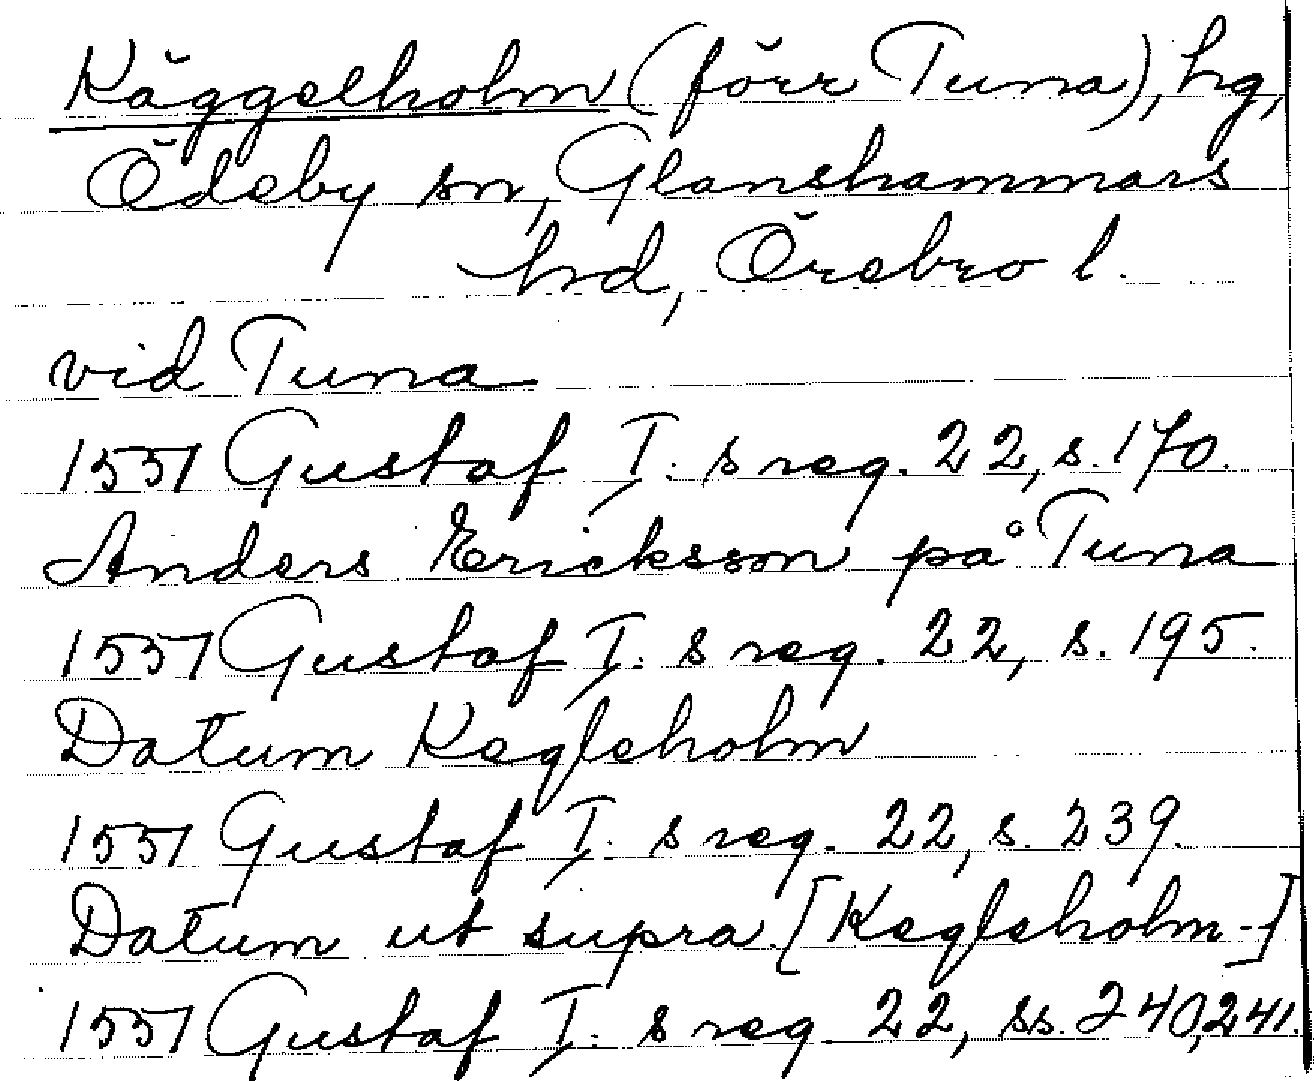 Käggelholm (förr Tuna), hg,
Ödeby sn, Glanshammars
hrd, Örebro l.
vid Tuna
1551 Gustaf I. s reg. 22, s. 170.
Anders Ericksson på Tuna
1551 Gustaf I. s reg. 22, s. 195.
Datum Kegleholm
1551 Gustaf I. s reg. 22, s. 239.
Datum ut supra [Kegleholm-]
1551 Gustaf I. s reg. 22, ss. 240, 241.